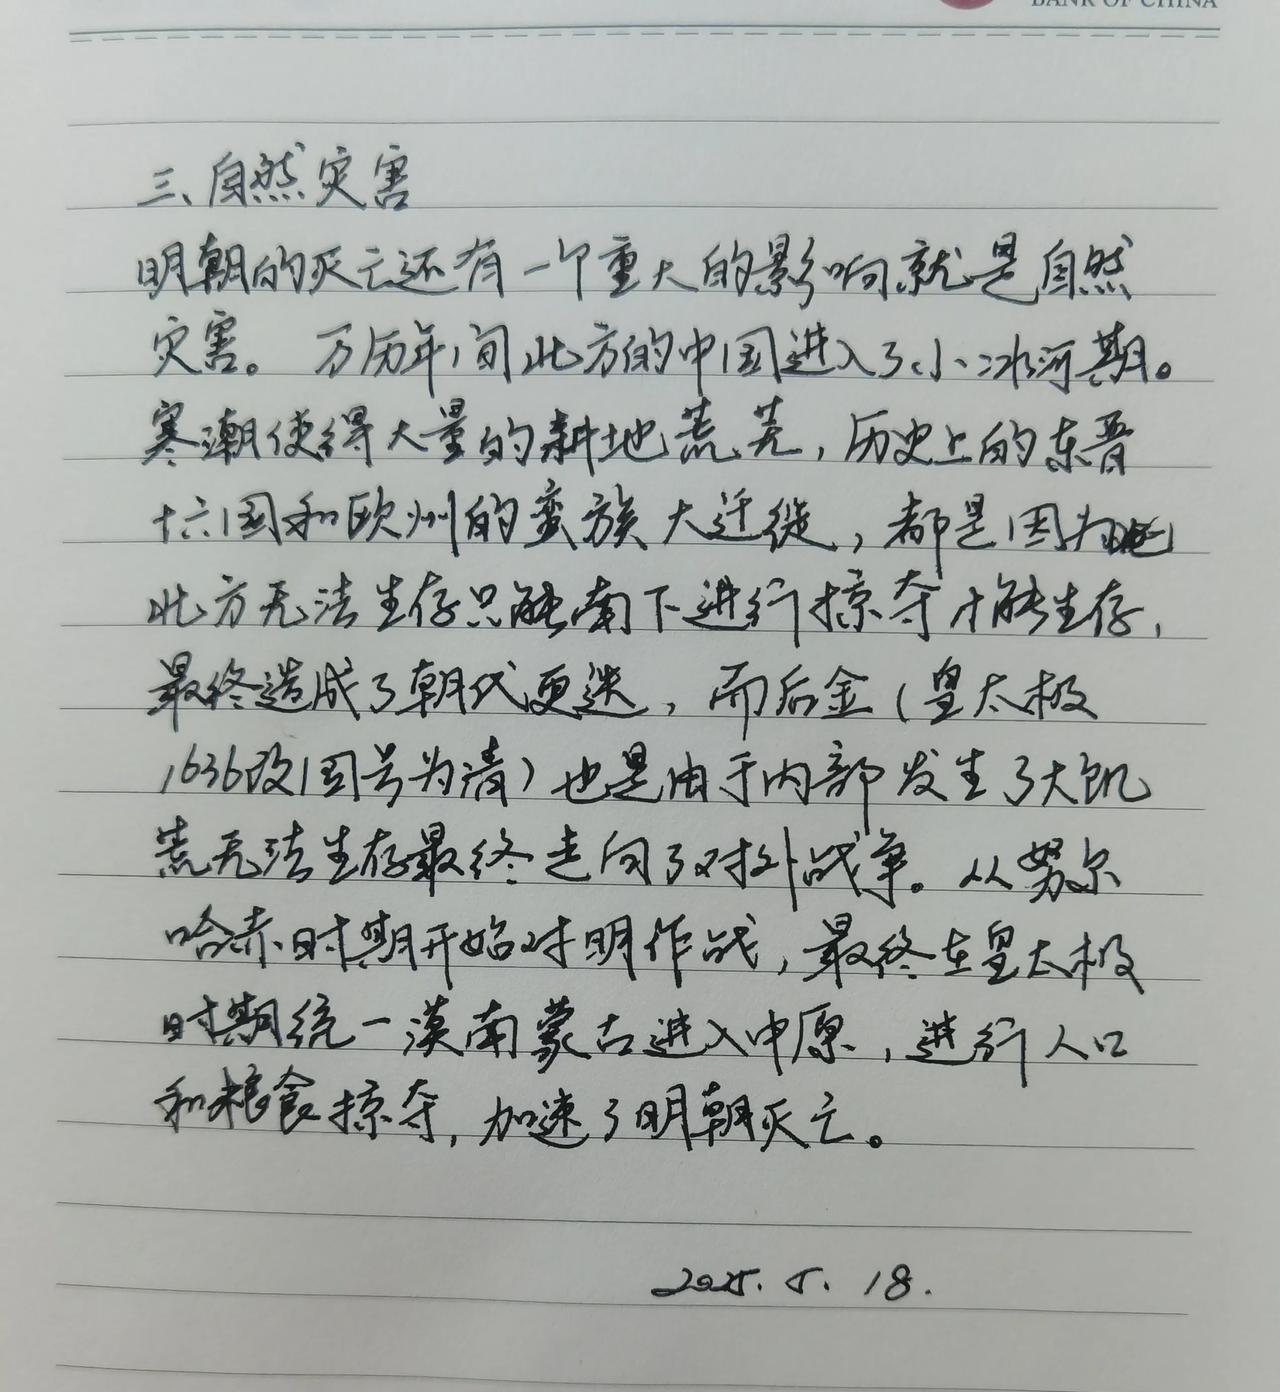 BANK OF CHINA
三、自然灾害
明朝的灭亡还有一个重大的影响就是自然
灾害。万历年间北方的中国进入了小冰河期。
寒潮使得大量的耕地荒芜，历史上的东晋
十六国和欧州的蛮族大迁徙，都是因为
北方无法生存只能南下进行掠夺才能生存，
最终造成了朝代更迭，而后金（皇太极
1636改国号为清）也是由于内部发生了大饥
荒无法生存最终走向了对外战争。从努尔
哈赤时期开始对明作战，最终在皇太极
时期统一漠南蒙古进入中原，进行人口
和粮食掠夺，加速了明朝灭亡。
2025.5.18.